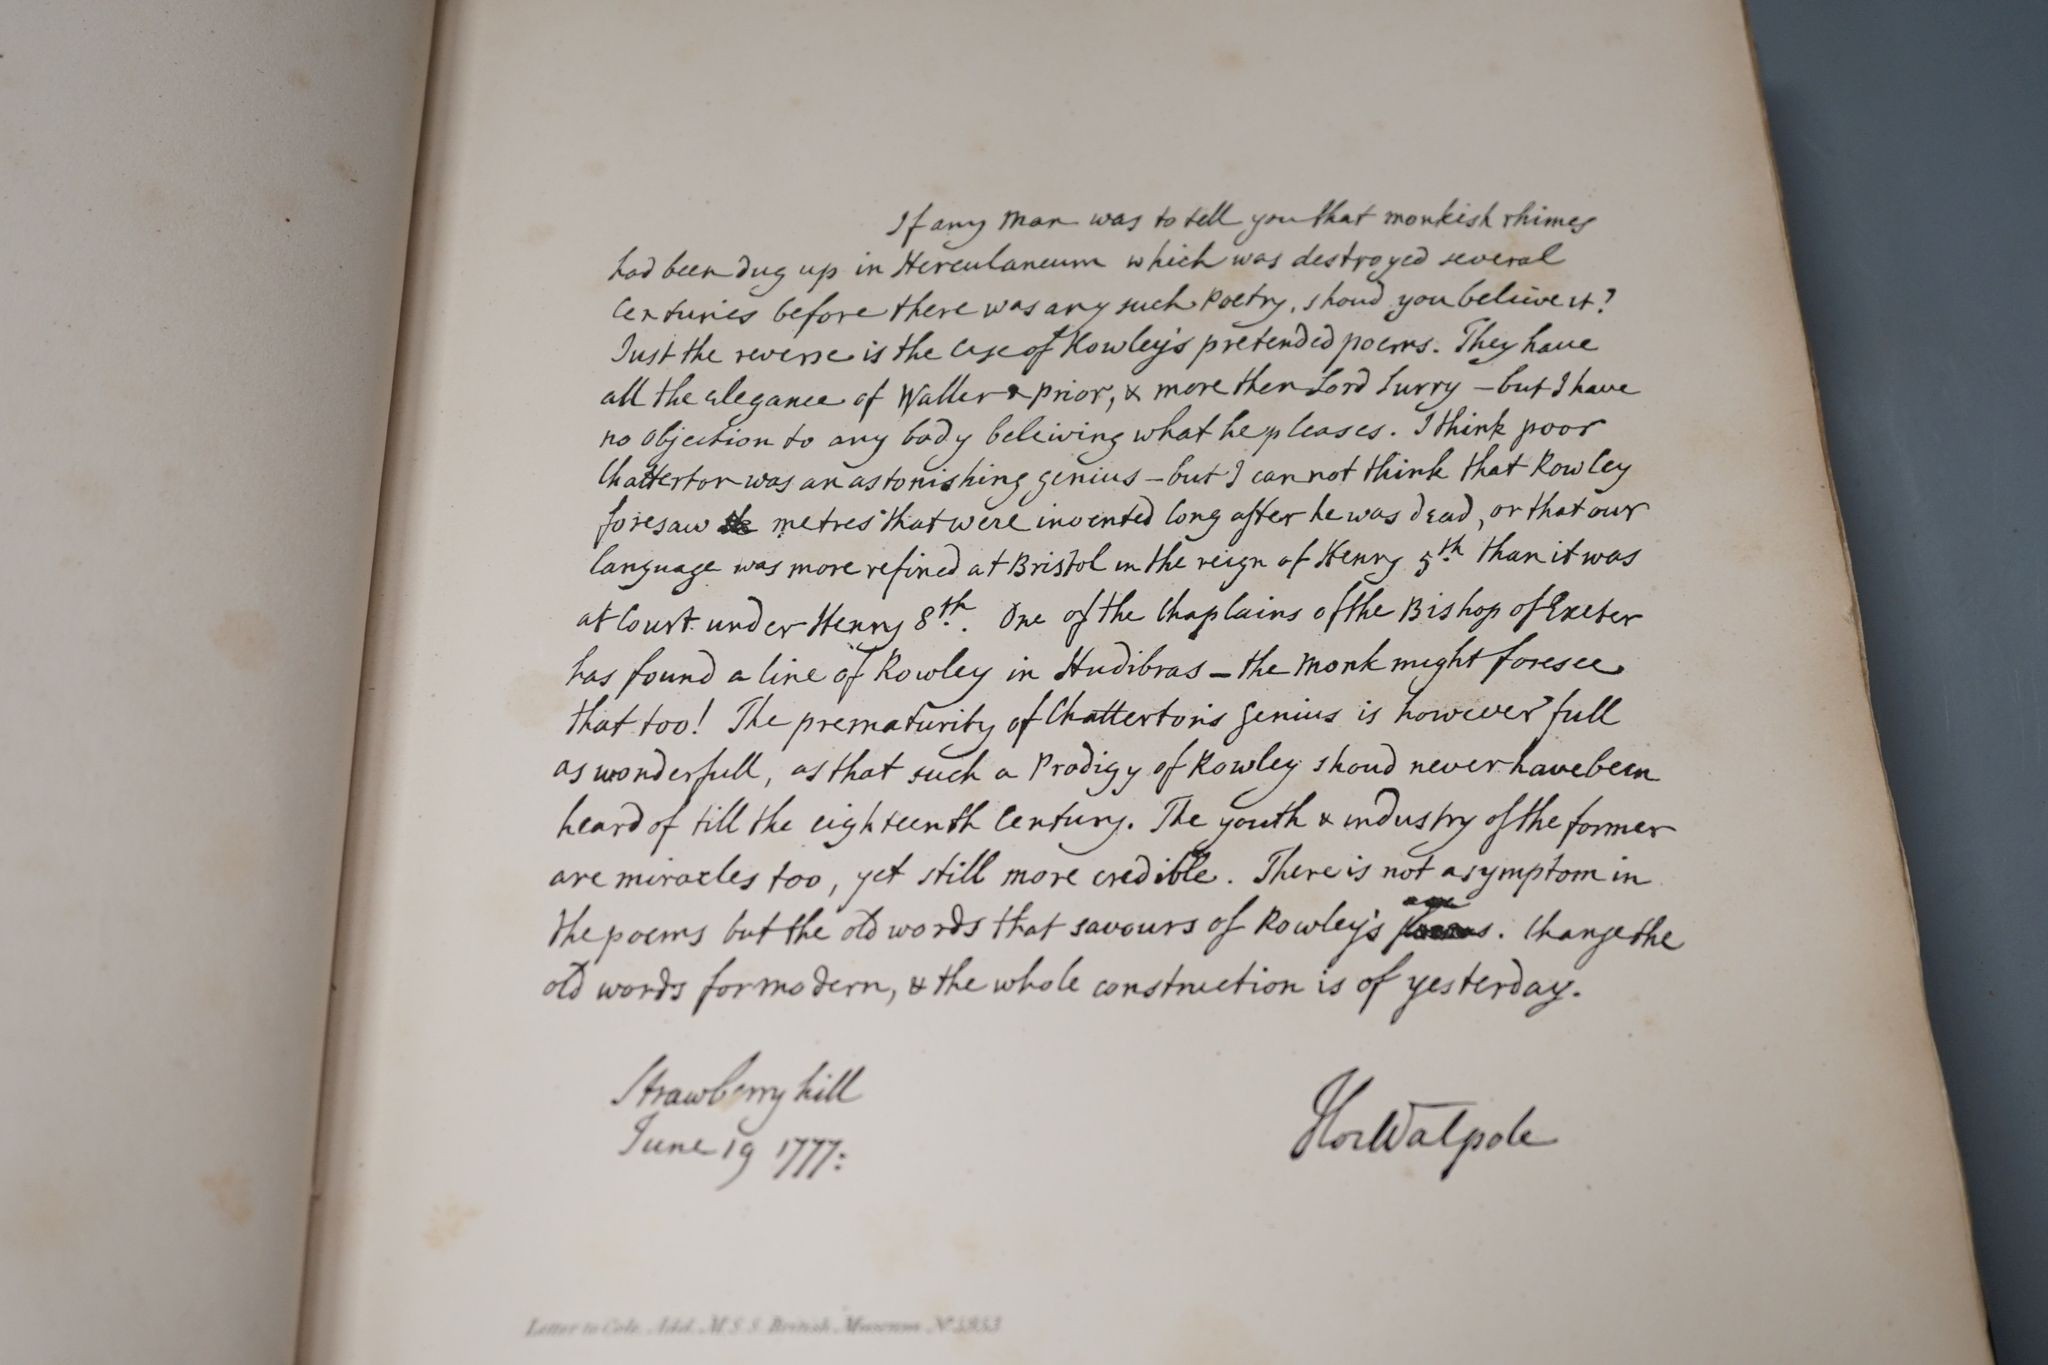 If any Man was to tell you that monkish rhimes
had been dug up in Herculaneum which was destroyed several
Centuries before there was any such Poetry, shoud you believe it?
Just the reverse is the Case of Rowley's pretended poems. They have
all the elegance of Waller & Prior, & more then Lord Surry – but I have
no objection to any body beleiving what he pleases. I think poor
Chatterton was an astonishing genius – but I can not think that Rowley
foresaw metres that were invented long after he was dead, or that our
language was more refined at Bristol in the reign of Henry 5th than it was
at Court under Henry 8th. One of the Chaplains of the Bishop of Exeter
has found a line of Rowley in Hudibras – the Monk might foresee
that too! The prematurity of Chatterton's genius is however full
as wonderfull, as that such a Prodigy of Rowley shoud never have been
heard of till the eighteenth Century. The youth & industry of the former
are miracles too, yet still more credible. There is not a symptom in
the poems but the old words that savours of Rowley's age. Change the
old words for modern, & the whole construction is of yesterday.
Strawberry hill
June 19 1777:
Hor Walpole
Letter to Cole. Add. M.S.S. British Museum No 5953